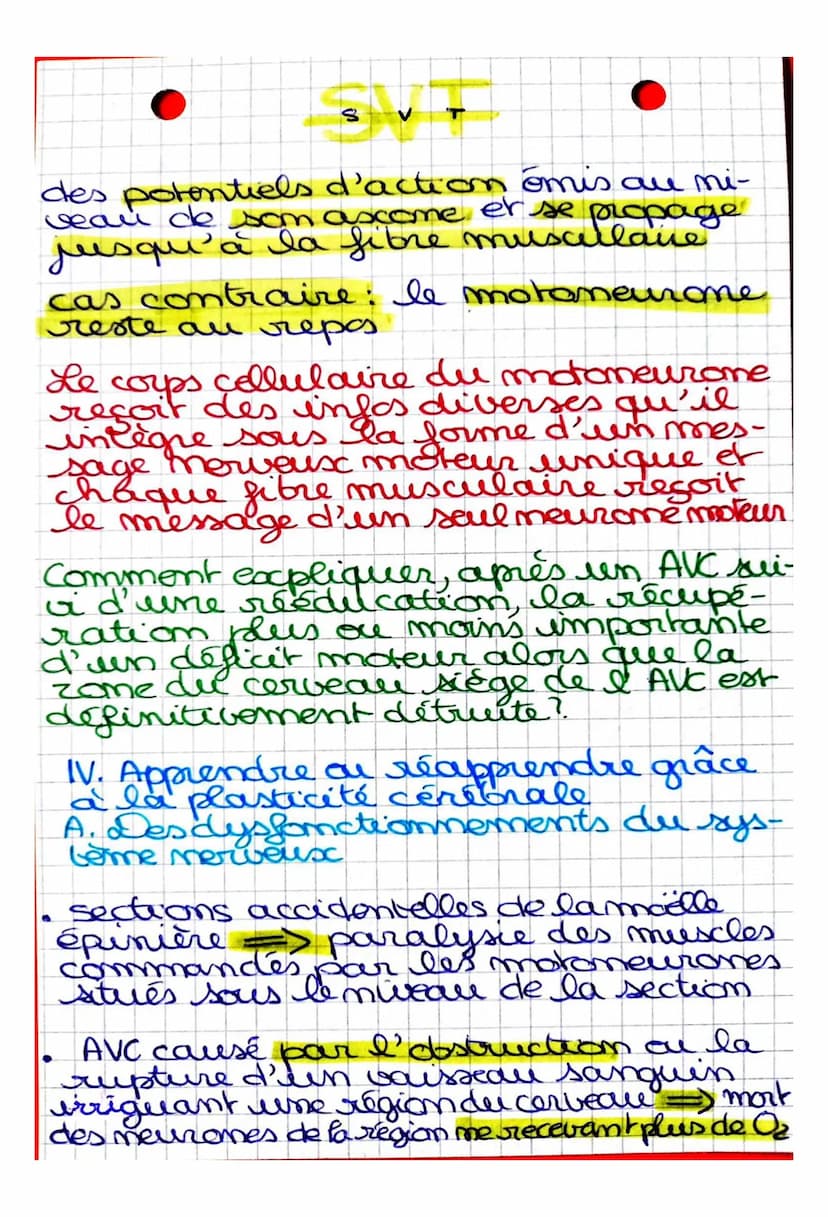 SVT
S V T
des potentiels d'action émis au ni-
veau de son axone, et se propage
jusqu'à la fibre musculaire
cas contraire : le motoneurone
reste au repos
Le corps cellulaire du motoneurone
reçoit des infos diverses qu'il
intègre sous la forme d'un mes-
sage nerveux moteur unique et
chaque fibre musculaire reçoit
le message d'un seul neurone moteur
Comment expliquer, après un AVC sui-
vi d'une rééducation, la récupé-
ration plus ou moins importante
d'un déficit moteur alors que la
zone du cerveau siège de l'AVC est
définitivement détruite ?
IV. Apprendre ou réapprendre grâce
à la plasticité cérébrale
A. Des dysfonctionnements du sys-
tème nerveux
• sections accidentelles de la moëlle
épinière => paralysie des muscles
commandés par les motoneurones
situés sous le niveau de la section
• AVC causé par l'obstruction ou la
rupture d'un vaisseau sanguin
irriguant une région du cerveau => mort
des neurones de la région ne recevant plus de O2